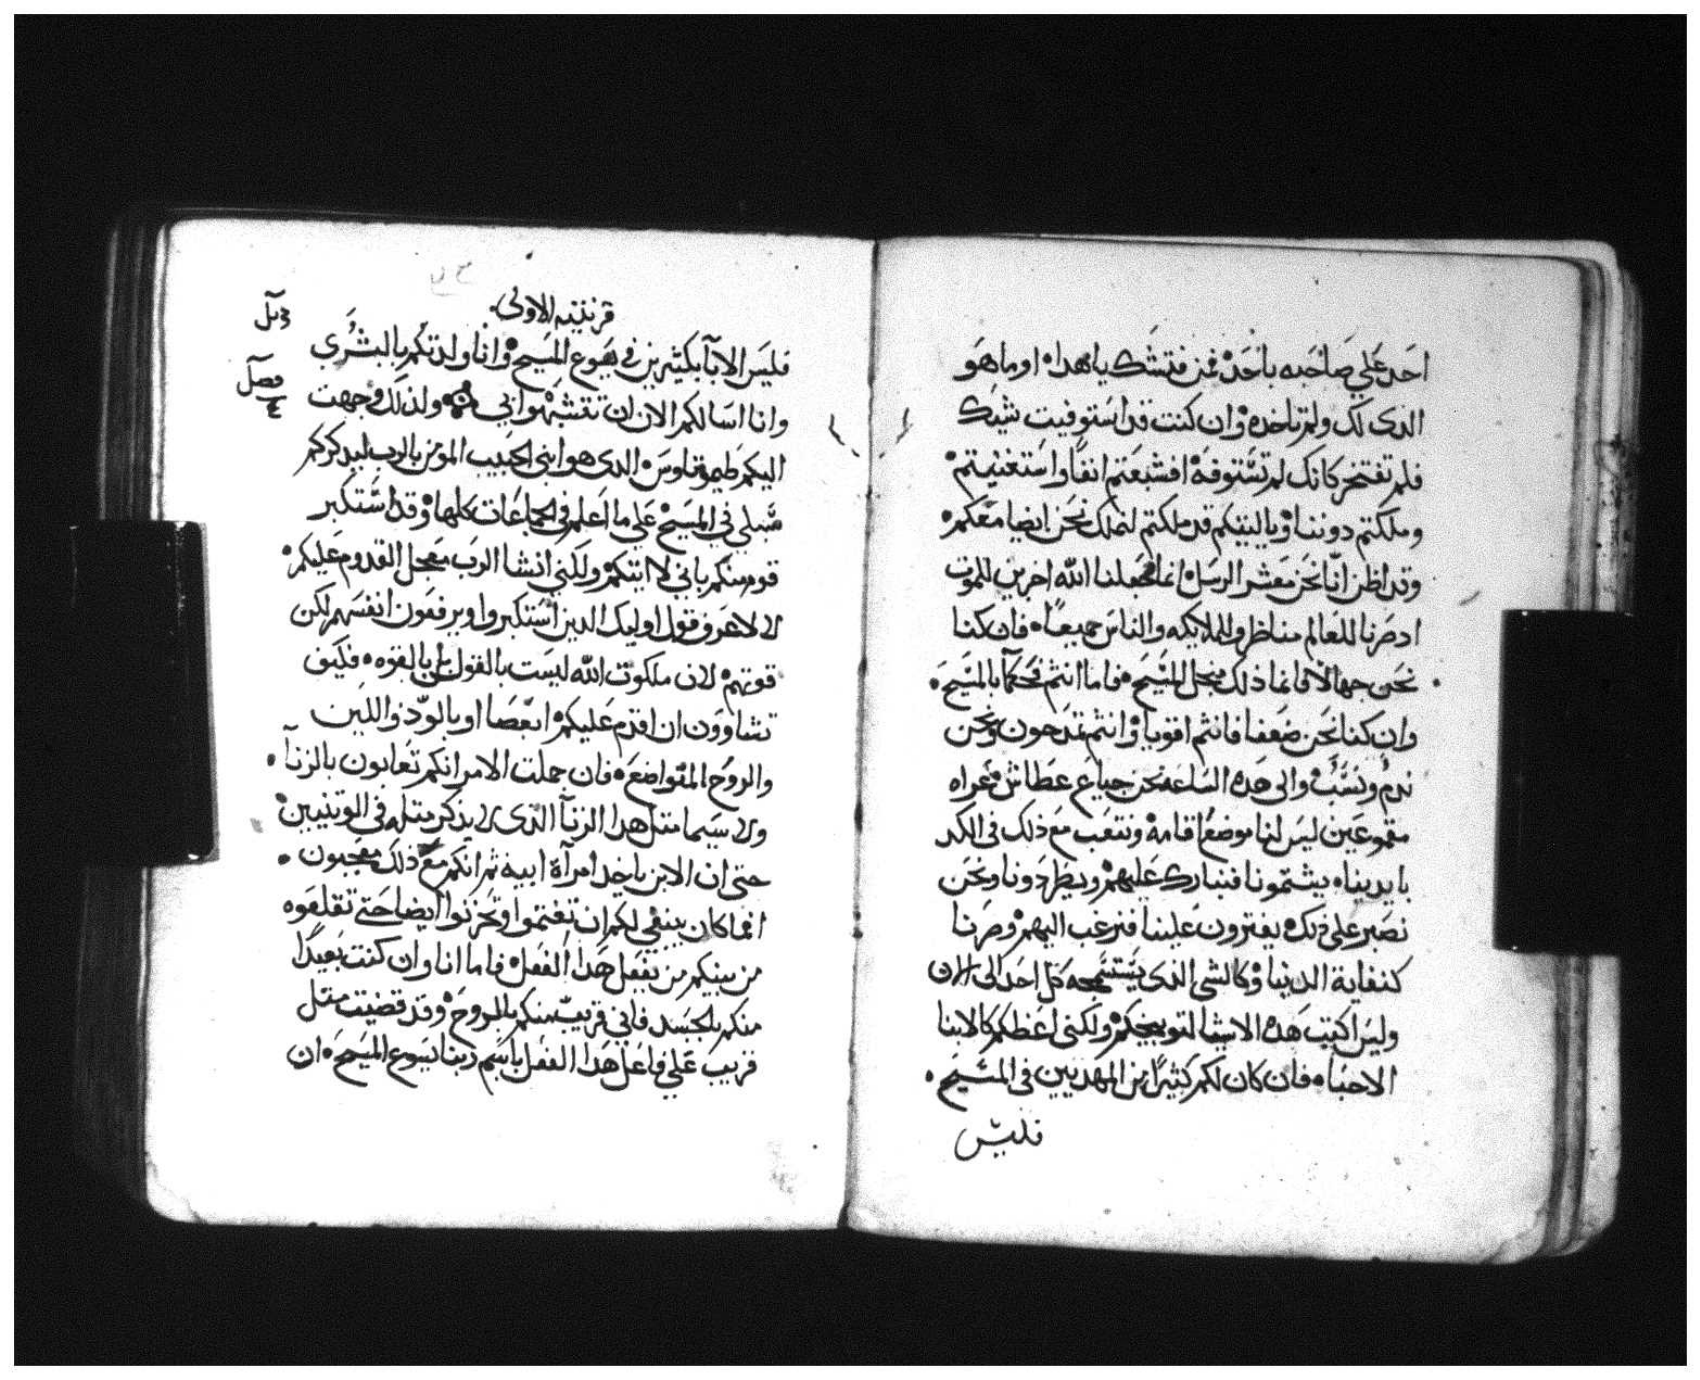 احد علي صاحبه باحد فمن فتشك ياهدا او ما هو
الدى لك ولم تاخده وان كنت قد استوفيت شيك
فلم تفتخر كانك لم تستوفه افشبعتم انفا واستغنيتم
وملكتم دوننا وياليتكم قد ملكتم لنملك نحن ايضا معكم
وقد اظن انا نحن معشر الرسل انما جعلنا الله اخرين للموت
ادصرنا للعالم مناظر وللملايكه والناس جميعا فان كنا
نحن جهالا فانما ذلك من اجل المسيح فاما انتم فحكما بالمسيح
وان كنا نحن ضعفا فانتم اقويا وانتم تمدحون ونحن
ندم ونسب والى هده الساعه نحن جياع عطاش عراه
مقموعين ليس لنا موضع اقامه ونتعب مع ذلك في الكد
بايدينا يشتمونا فنبارك عليهم ويطردونا ونحن
نصبر على ذلك يفترون علينا فنرغب اليهم وصرنا
كنفاية الدنيا وكالشي الذى يستسمجه كل احد الى الان
وليس اكتب هده الاشيا لتوبيخكم ولكني اعظكم كالابنا
الاحبا فان كان لكم كثيرا من المهديين في المسيح
فليس
قرنتيه الاولى
فليس الابا بكتيرين في يسوع المسيح وانا ولدتكم بالبشرى
وانا اسالكم الان ان تتشبهوا بي ولذلك وجهت
فصل
٤
اليكم طيموتاوس الدى هو ابني الحبيب المومن بالرب ليدكركم
سبلي في المسيح علي ما اعلم في الجماعات كلها وقد استكبر
قوم منكم باني لا اتيكم ولكني انشا الرب معجل القدوم عليكم
لا لاعرف قول اوليك الدين استكبروا ويرفعون انفسهم لكن
قوتهم لان ملكوت الله ليست بالقول بل بالقوه فكيف
تشاوون ان اقدم عليكم ابعصا او بالود واللين
والروح المتواضعه فان جملت الامر انكم تعابون بالزنا
ولا سيما متل هدا الزنا الدى لا يذكر متله في الوتنيين
حتى ان الابن ياخد امرآة ابيه ثم انكم مع ذلك معجبون
افما كان ينبغي لكم ان تغتموا وتحزنوا ايضا حتى تقلعوه
من بينكم من يفعل هدا الفعل فاما انا وان كنت بعيدا
منكم بالجسد فاني قريب منكم بالروح وقد قضيت متل
قريب علي فاعل هدا الفعل باسم ربنا يسوع المسيح ان